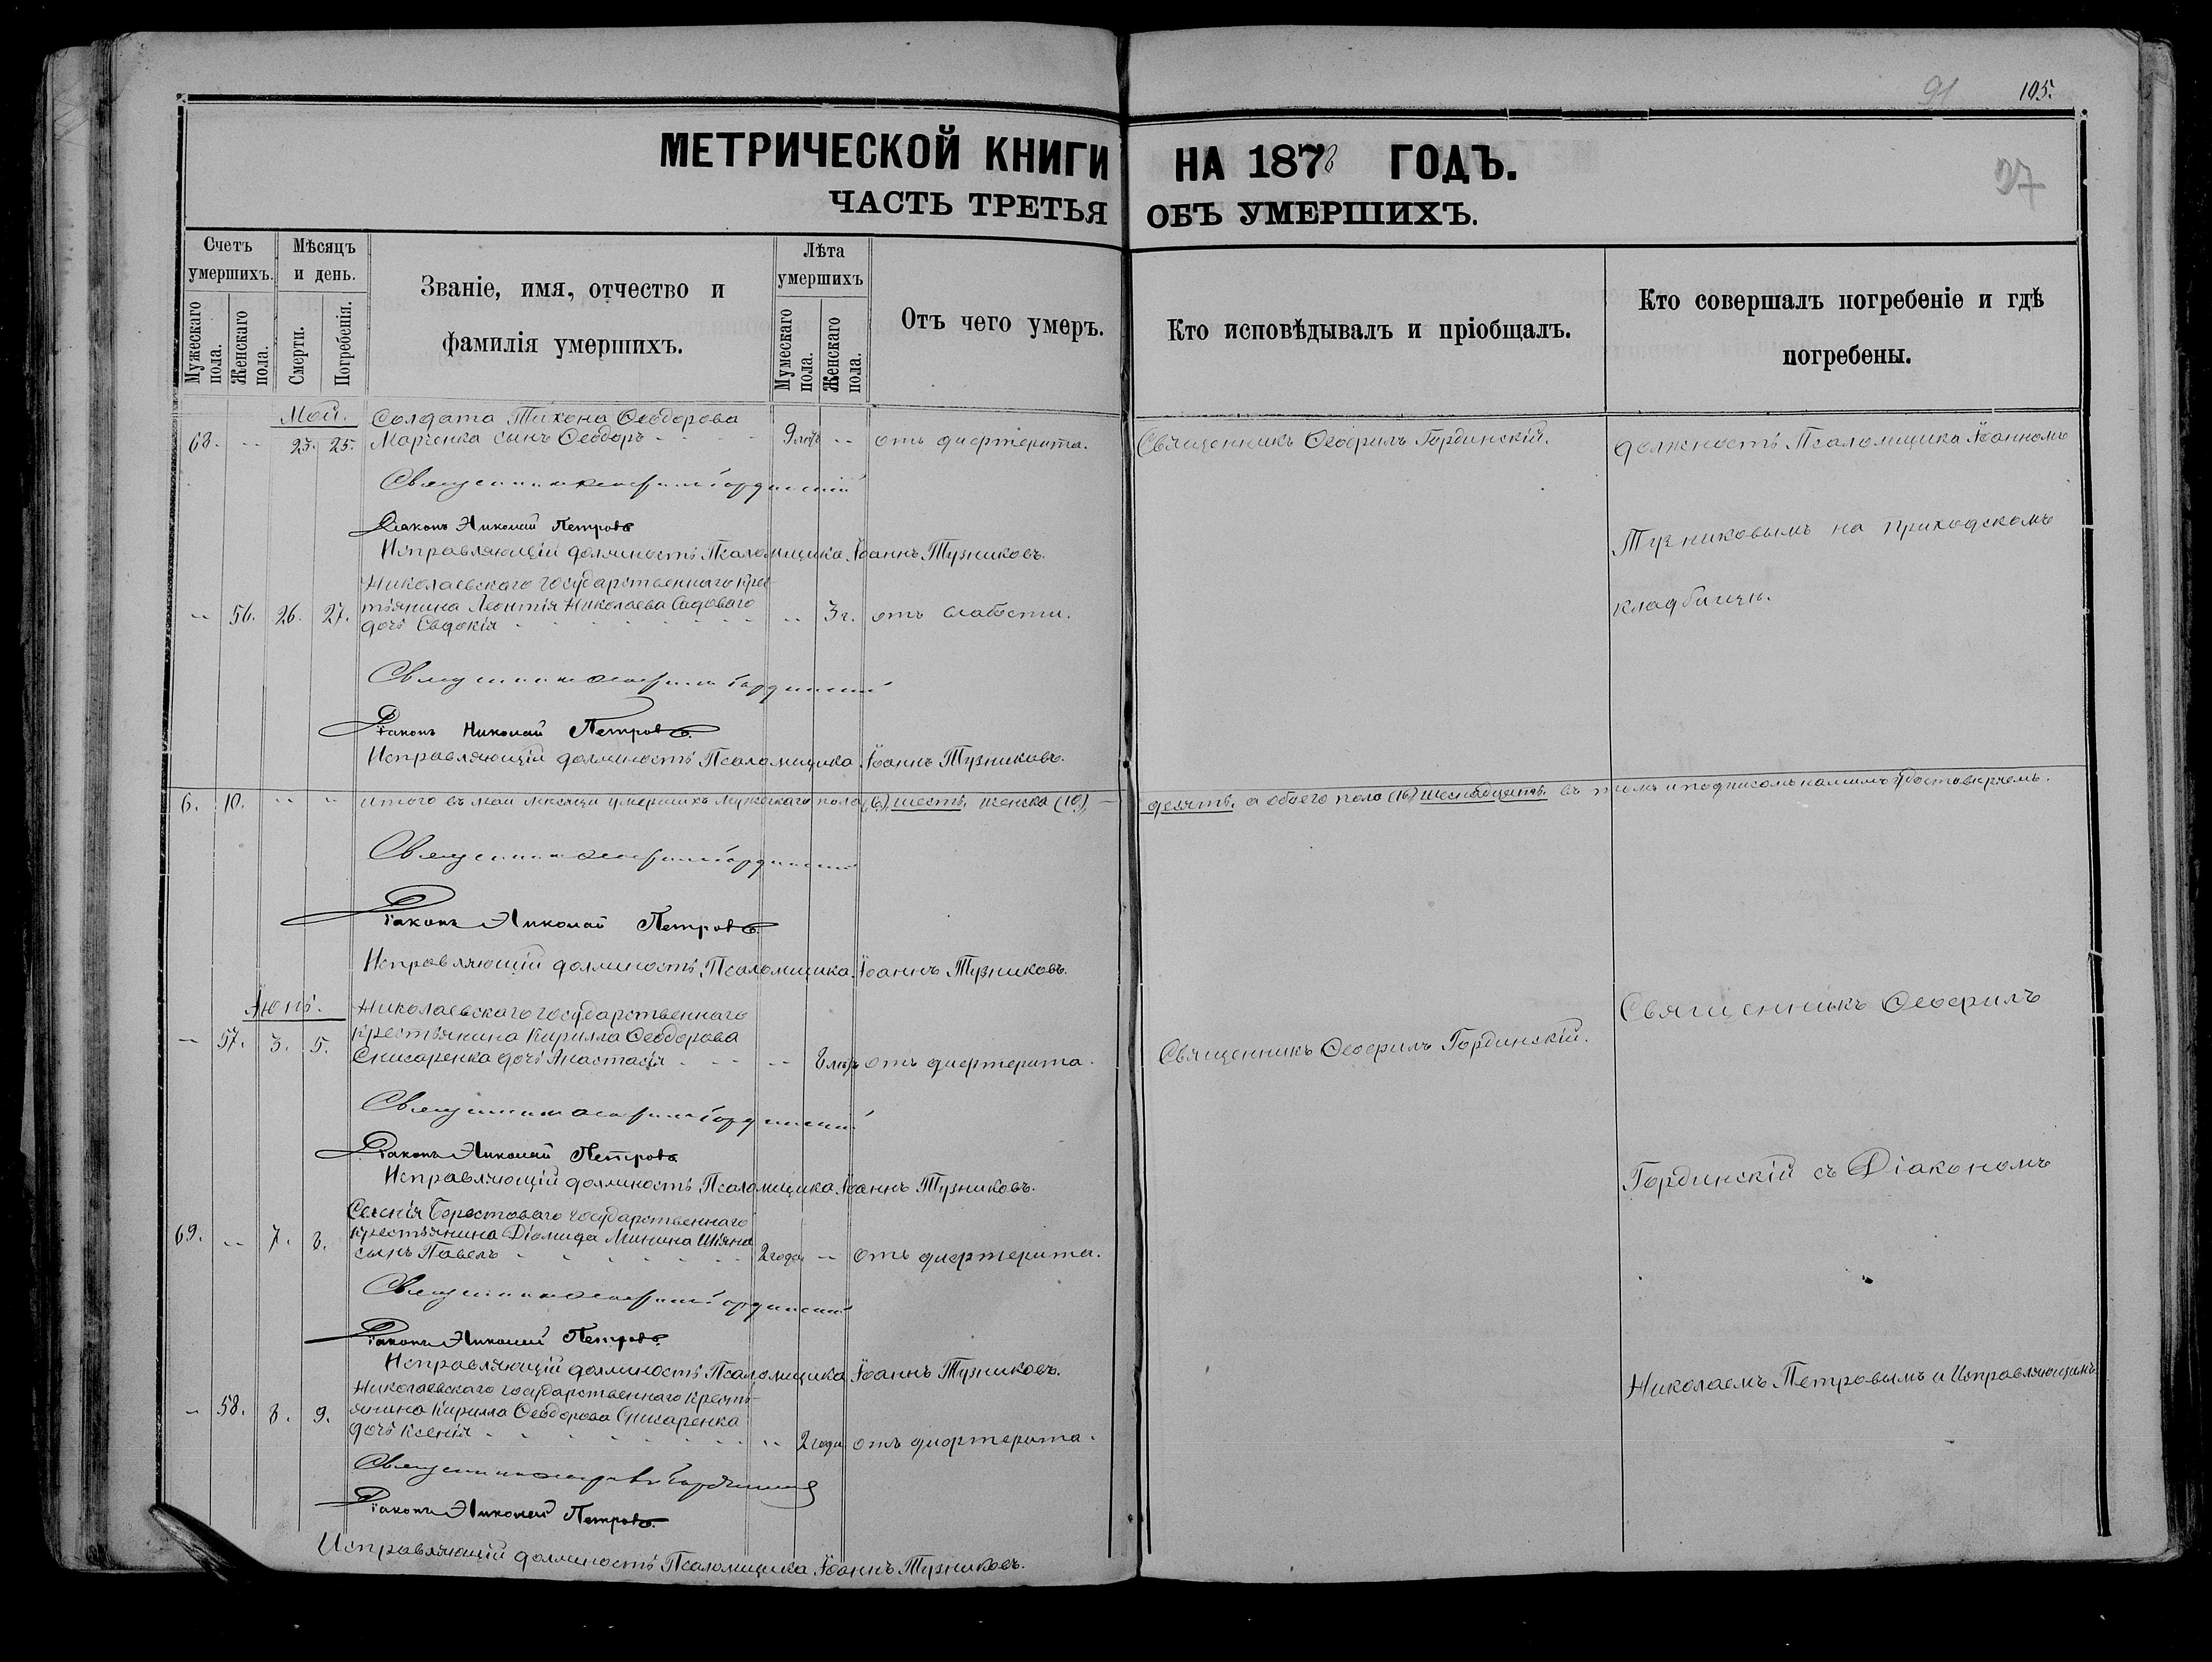 91
105.
37
МЕТРИЧЕСКОЙ КНИГИ НА 1878 ГОДЪ.
ЧАСТЬ ТРЕТЬЯ ОБЪ УМЕРШИХЪ.
Счетъ умершихъ.
Мужескаго пола.
Женскаго пола.
Мѣсяцъ и день.
Смерти.
Погребенія.
Званіе, имя, отчество и
фамилія умершихъ.
Лѣта умершихъ
Мужескаго пола.
Женскаго пола.
Отъ чего умеръ.
Кто исповѣдывалъ и пріобщалъ.
Кто совершалъ погребеніе и гдѣ
погребены.
Май. Солдата Тихона Ѳеодорова
68. -- 23. 25. Марченка сынъ Ѳеодоръ 9 лѣтъ -- отъ дифтерита. Священникъ Ѳеофилъ Гординскій. должность Псаломщика Іоанномъ
Священникъ Ѳеофилъ Гординскій
Діаконъ Николай Петровъ
Исправляющій должность Псаломщика Іоаннъ Тузниковъ.
Тузниковымъ на приходскомъ
Николаевскаго государственнаго крес-
-- 56. 26. 27. тьянина Леонтія Николаева Садоваго
дочь Евдокія -- 3 г. отъ слабости.
кладбищѣ.
Священникъ Ѳеофилъ Гординскій
Діаконъ Николай Петровъ.
Исправляющій должность Псаломщика Іоаннъ Тузниковъ.
6. 10. -- -- Итого въ маѣ мѣсяцѣ умершихъ мужескаго пола (6) шесть, женска (10), десять, а обоего пола (16) шестнадцать. въ томъ и подписомъ нашимъ удостовѣряемъ.
Священникъ Ѳеофилъ Гординскій
Діаконъ Николай Петровъ.
Исправляющій должность Псаломщика Іоаннъ Тузниковъ.
Іюнь. Николаевскаго государственнаго
-- 57. 3. 5. крестьянина Кирилла Ѳеодорова
Снисаренка дочь Анастасія -- 8 лѣтъ отъ дифтерита. Священникъ Ѳеофилъ Гординскій.
Священникъ Ѳеофилъ
Священникъ Ѳеофилъ Гординскій
Діаконъ Николай Петровъ
Исправляющій должность Псаломщика Іоаннъ Тузниковъ.
Гординскій съ Діакономъ
Селенія Берестоваго государственнаго
69. -- 7. 8. крестьянина Діомида Минина
сынъ Павелъ 2 года -- отъ дифтерита.
Священникъ Ѳеофилъ Гординскій
Діаконъ Николай Петровъ.
Исправляющій должность Псаломщика Іоаннъ Тузниковъ.
Николаемъ Петровымъ и Исправляющимъ
Николаевскаго государственнаго кресть-
-- 58. 8. 9. янина Кирилла Ѳеодорова Снисаренка
дочь Ксенія -- 2 года отъ дифтерита.
Священникъ Ѳеофилъ Гординскій
Діаконъ Николай Петровъ.
Исправляющій должность Псаломщика Іоаннъ Тузниковъ.